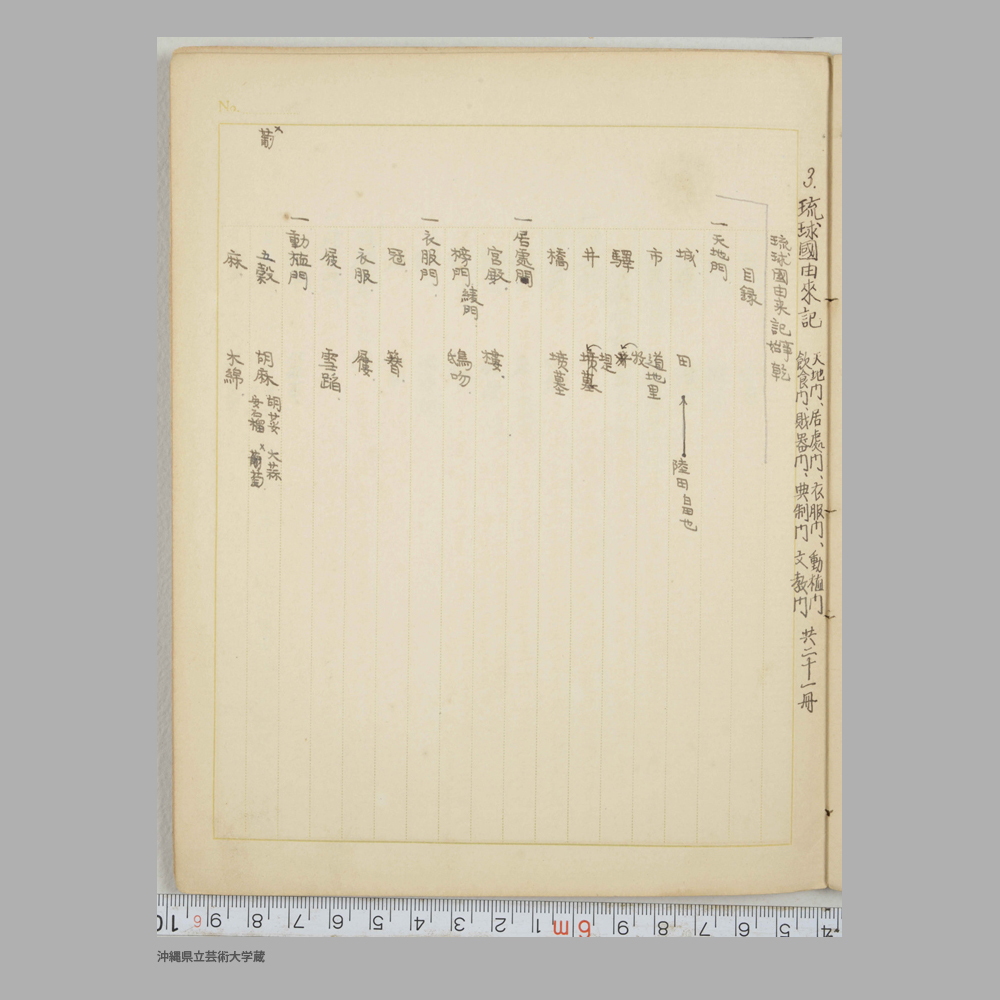 3. 琉球國由來記
天地門、居處門、衣服門、動植門
飲食門、財器門、典制門 文教門
共二十一冊
琉球國由来記 事始 乾
目録
一 天地門
城 田
陸田 畠也
市 道 地里
驛 堤
井 墳墓
橋 墳墓
一 居處門
宮殿 樓
榜門 綾門 鴟吻
一 衣服門
冠 簪
衣服 屨
屐 雪踏
一 動植門
五穀 胡麻 胡荽 大蒜
安石榴 葡萄
麻 木綿
葡
No.
沖縄県立芸術大学蔵